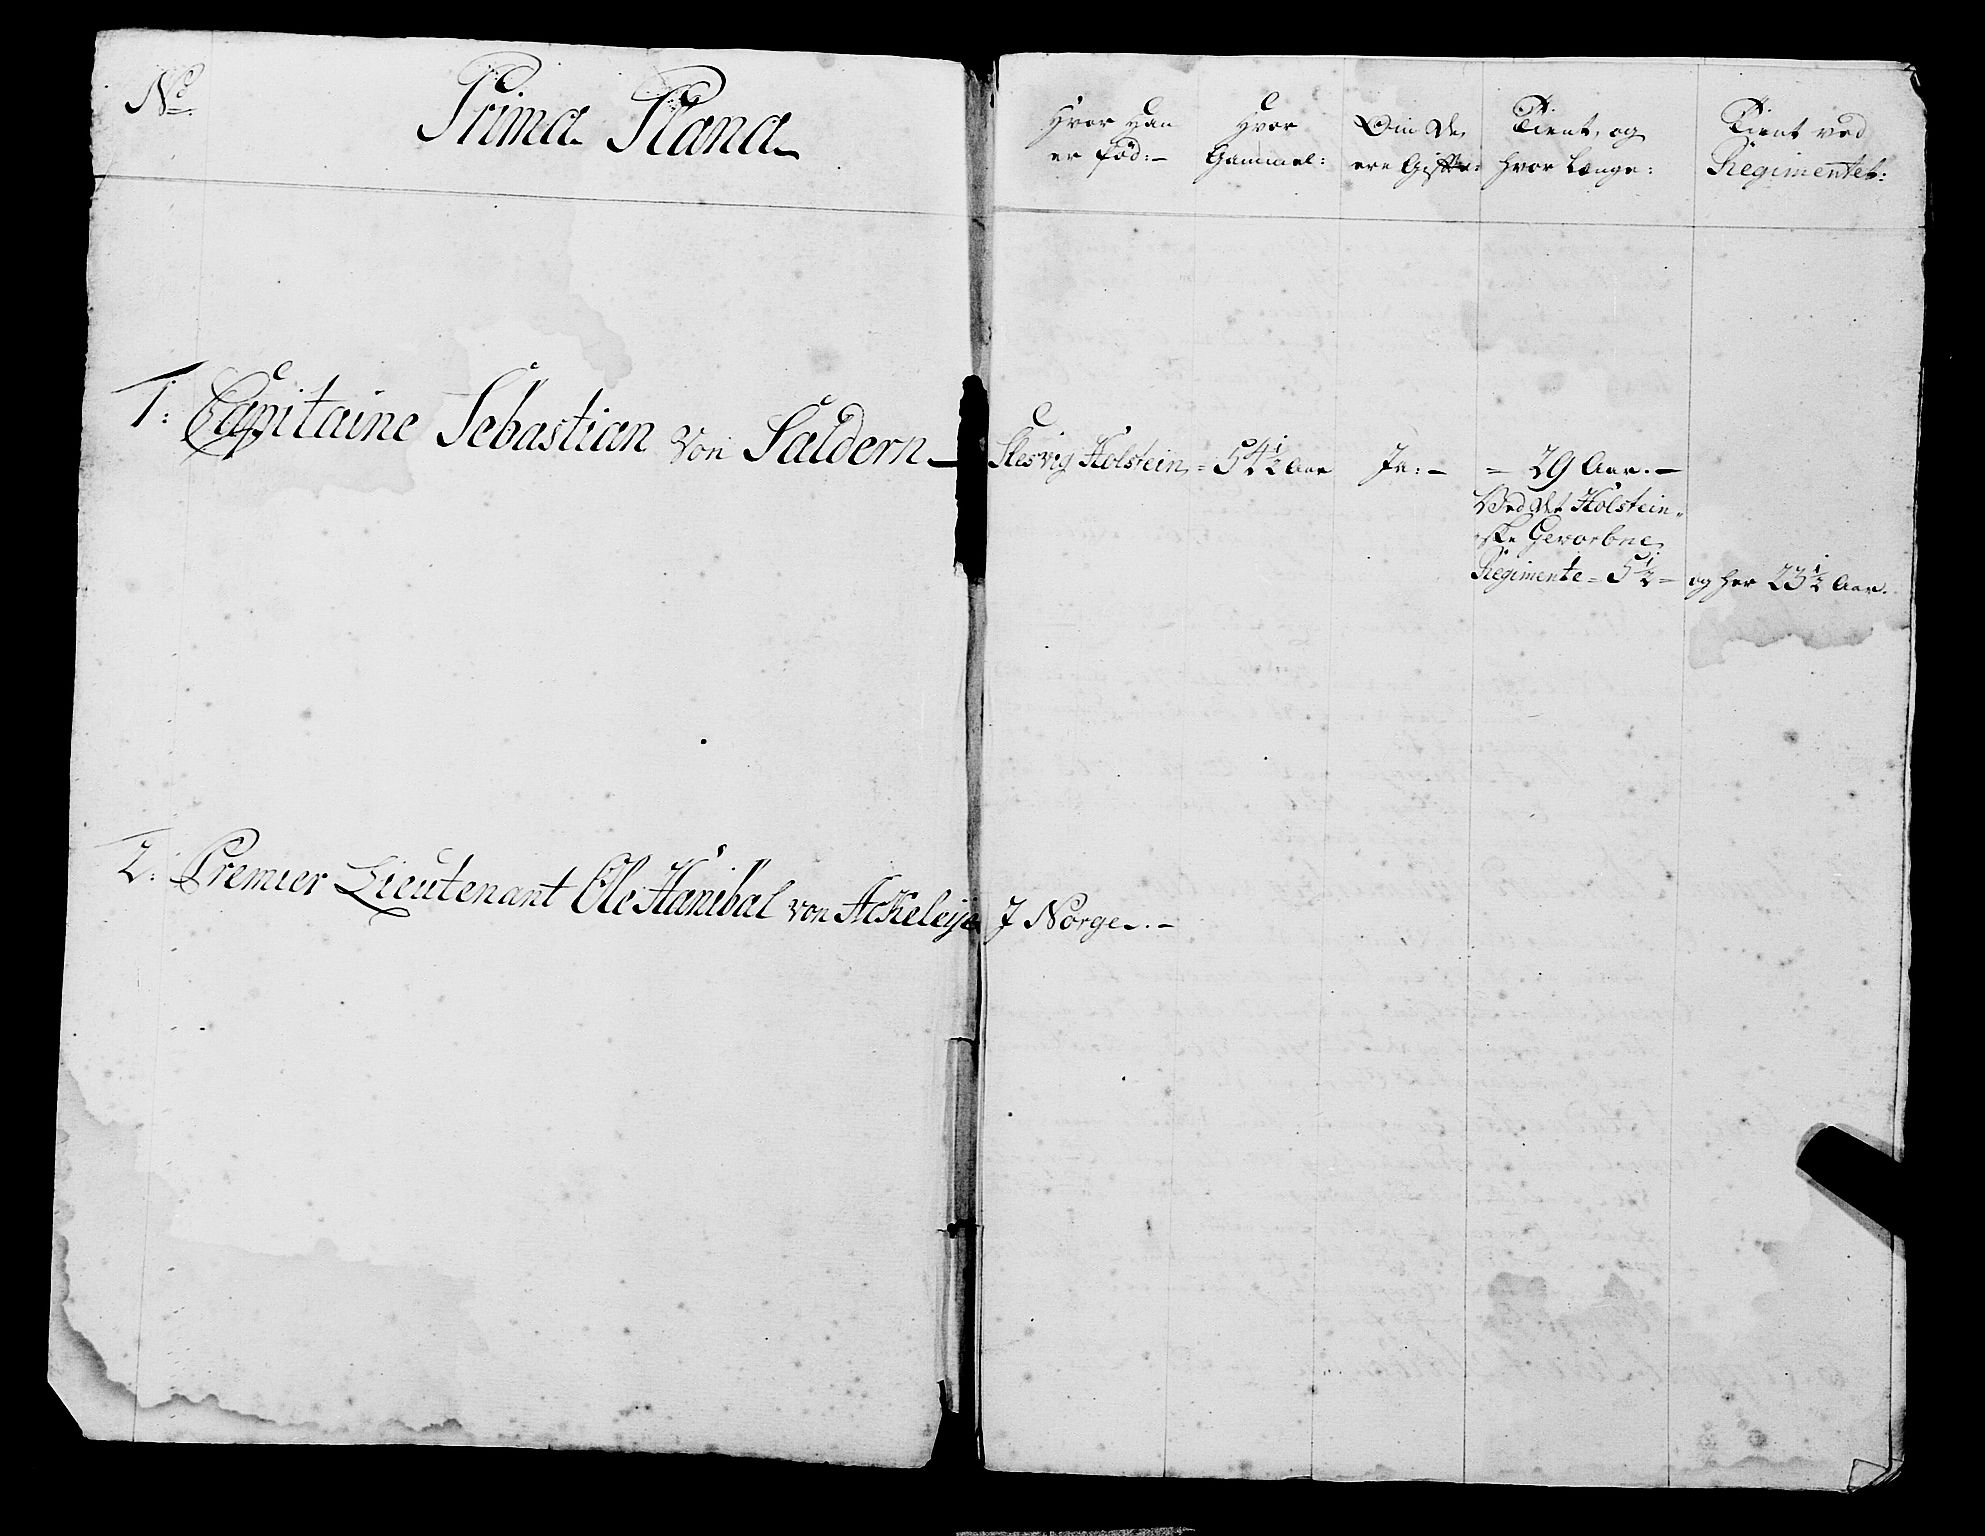 No.
Prima Plana
Hvor Han
er fød:
Hvor
Gammel:
Om De
ere Gifte:
Tient og
hvor Længe:
Tient ved
Regimentet:
1: Capitaine Sebastian von Saldern
Slesvig Holstein = 54½ Aar
Ja:
= 29 Aar.
Ved det Holstein-
ske Gevorbne
Regimente = 5½ = og her 23½ Aar.
2: Premier Lieutenant Ole Hanibal von Ackeleije
I Norge.